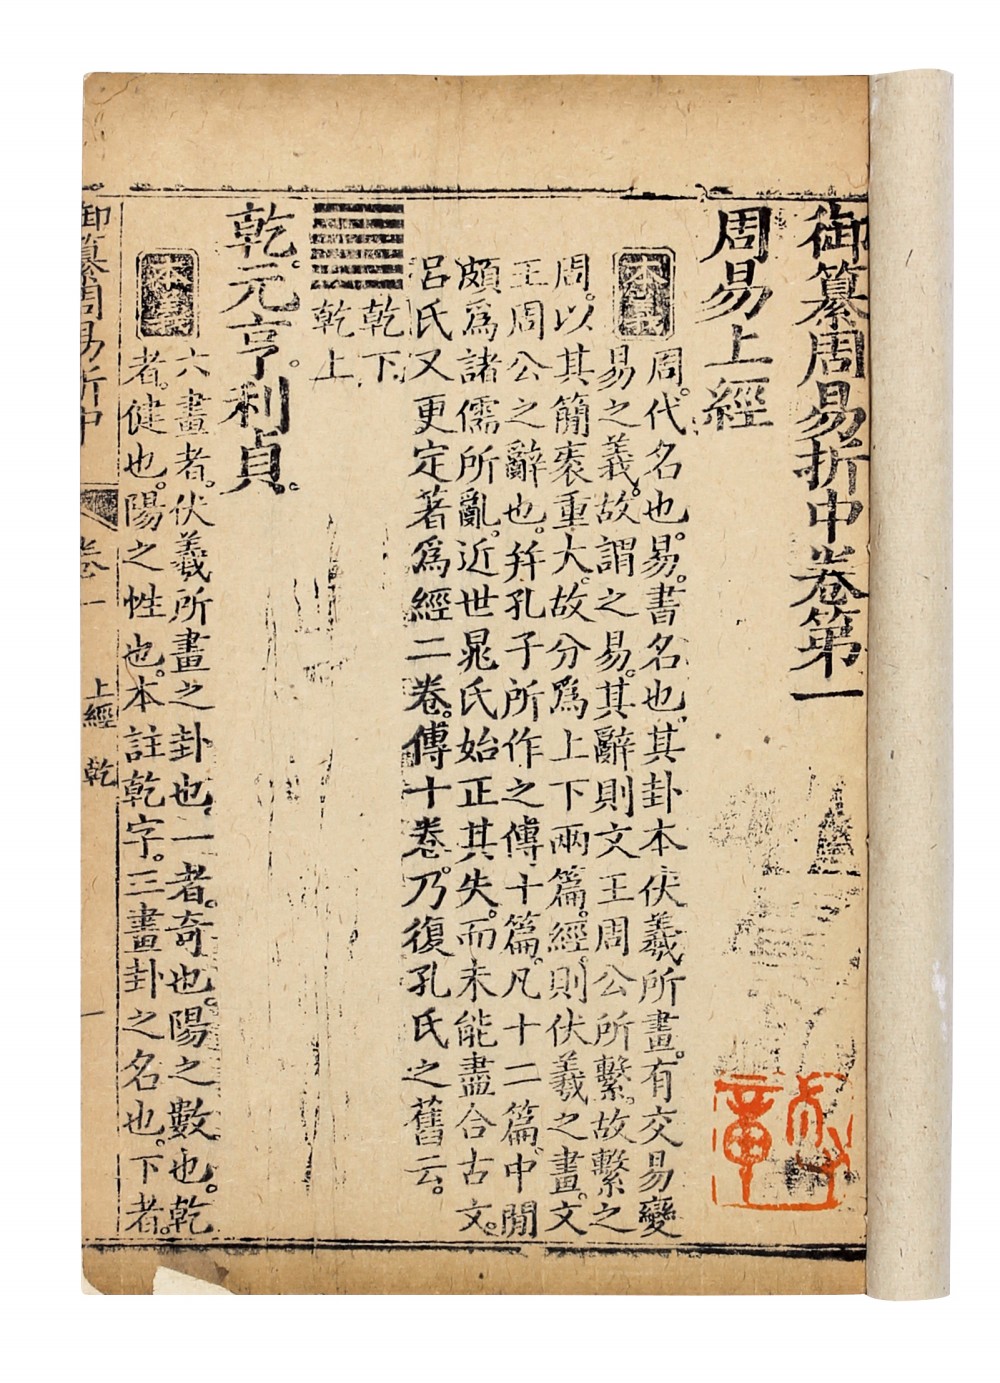 御纂周易折中卷第一
周易上經
本義
周。代名也。易。書名也。其卦本伏羲所畫。有交易變
易之義。故謂之易。其辭則文王周公所繫。故繫之
周。以其簡袠重大。故分爲上下兩篇。經則伏羲之畫。文
王周公之辭也。并孔子所作之傳十篇。凡十二篇。中閒
頗爲諸儒所亂。近世晁氏始正其失。而未能盡合古文。
呂氏又更定著爲經二卷。傳十卷。乃復孔氏之舊云。
乾下
乾上
乾。元亨。利貞。
本義
六畫者。伏羲所畫之卦也。一者。奇也。陽之數也。乾
者。健也。陽之性也。本註乾字。三畫卦之名也。下者。
御纂周易折中
卷一
上經 乾
一